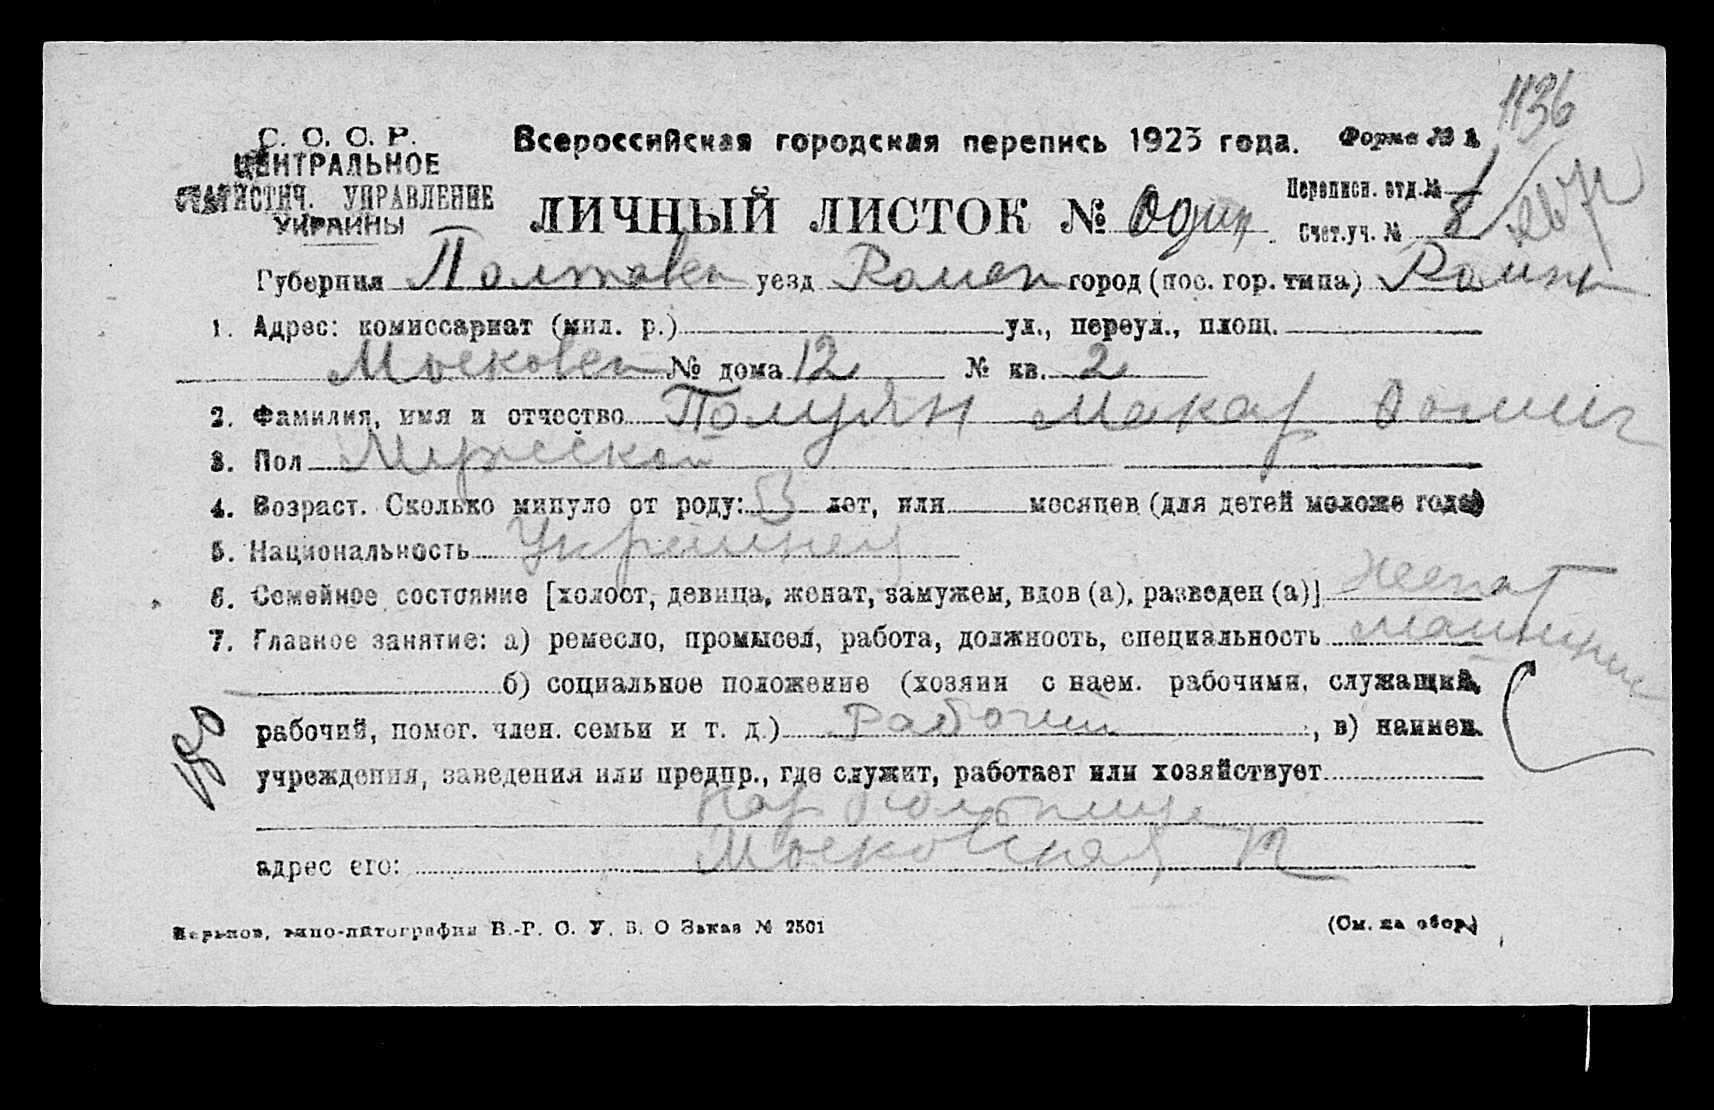 1136
С. С. С. Р.
ЦЕНТРАЛЬНОЕ
СТАТИСТИЧ. УПРАВЛЕНИЕ
УКРАИНЫ
Всероссийская городская перепись 1923 года.
Форма № 1
ЛИЧНЫЙ ЛИСТОК № Один
Переписн. отд. № 1
Счет.уч. № 8
Губерния Полтавск уезд Ромен город (пос. гор. типа) Ромны
1. Адрес: комиссариат (мил. р.) ул., переул., площ.
Московск № дома 12 № кв. 2
2. Фамилия, имя и отчество Полуян Макар
3. Пол Мужской
4. Возраст. Сколько минуло от роду: 53 лет, или месяцев (для детей моложе года)
5. Национальность Украинец
6. Семейное состояние [холост, девица, женат, замужем, вдов (а), разведен (а)] Женат
7. Главное занятие: а) ремесло, промысел, работа, должность, специальность
б) социальное положение (хозяин с наем. рабочими, служащий,
рабочий, помог. член. семьи и т. д.) Рабочий, в) наимен.
учреждения, заведения или предпр., где служит, работает или хозяйствует
больница
адрес его: Московская 12
Харьков, типо-литография В.-Р. С. У. В. О Заказ № 2501
(См. на обор.)